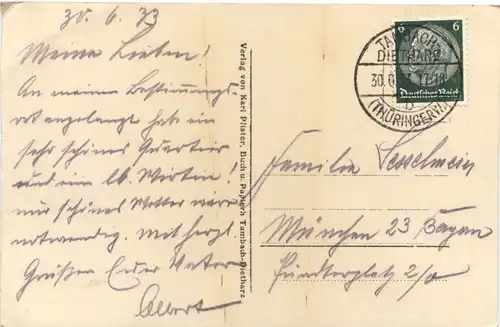 30. 6. 33
Meine Lieben!
An meinem Bestimmungs-
ort angelangt hab ein
sehr schönes Quartier
und eine lb. Wirtin!
nur schönes Wetter wäre
notwendig. Mit herzl.
Grüßen Euer Vater
Albert
Verlag von Karl Pfister, Buch u. Tambach-Dietharz
TAMBACH-
DIETHARZ
30.
17-18
(THÜRINGERW.)
6 6
Deutsches Reich
Familie
München 23 Bayern
2/0